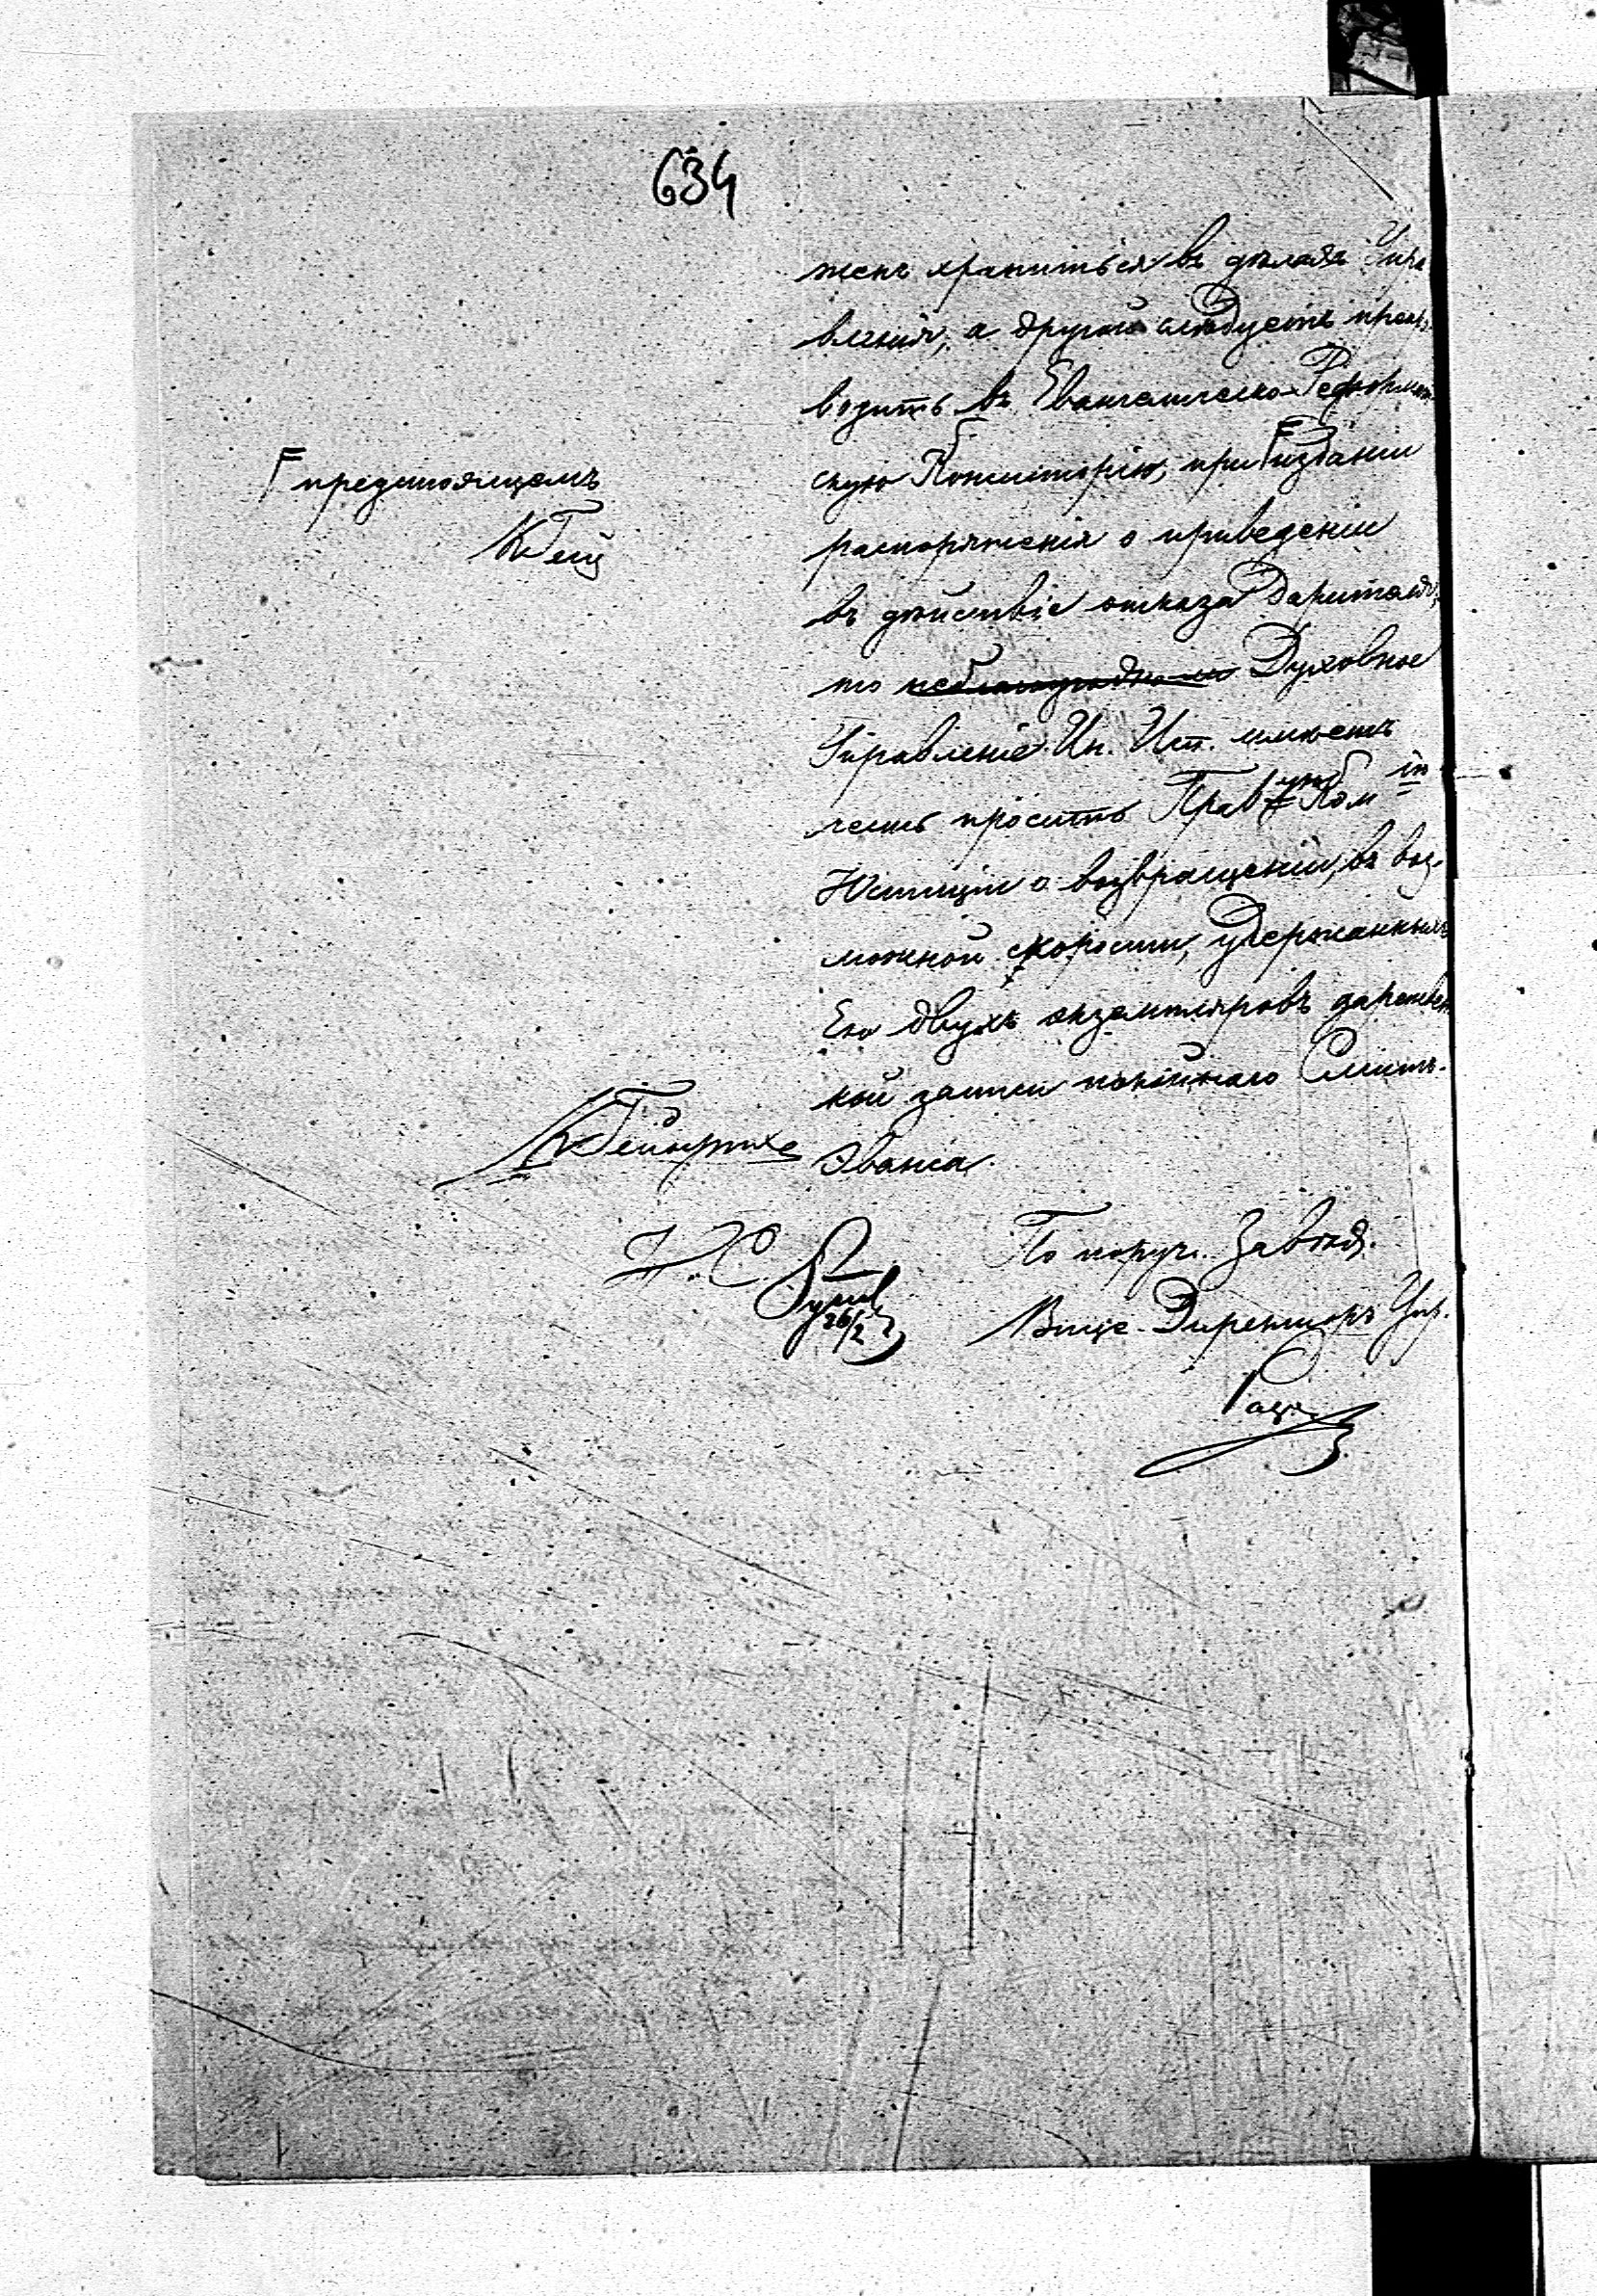 634
женъ храниться въ дѣлахъ Упра
вленія, а другой слѣдуетъ препро
водить въ Евангелическо-Реформат
скую Консисторію, при Г изданіи
Г предстоящемъ
КГей
распоряженія о приведеніи
въ дѣйствіе отказа Дарителя,
то Духовное
Управленіе Ин. Исп. имѣетъ
честь просить Прав. Ком іи
Юстиціи о возвращеніи, въ воз-
можной скорости, удержанныхъ
Ею двухъ экземпляровъ дарствен
ной записи покойнаго Смитъ-
Эванса.
КГейнрихъ
Н. С.
26/2
По поруч. Завѣд.
Вице-Директоръ Упр.